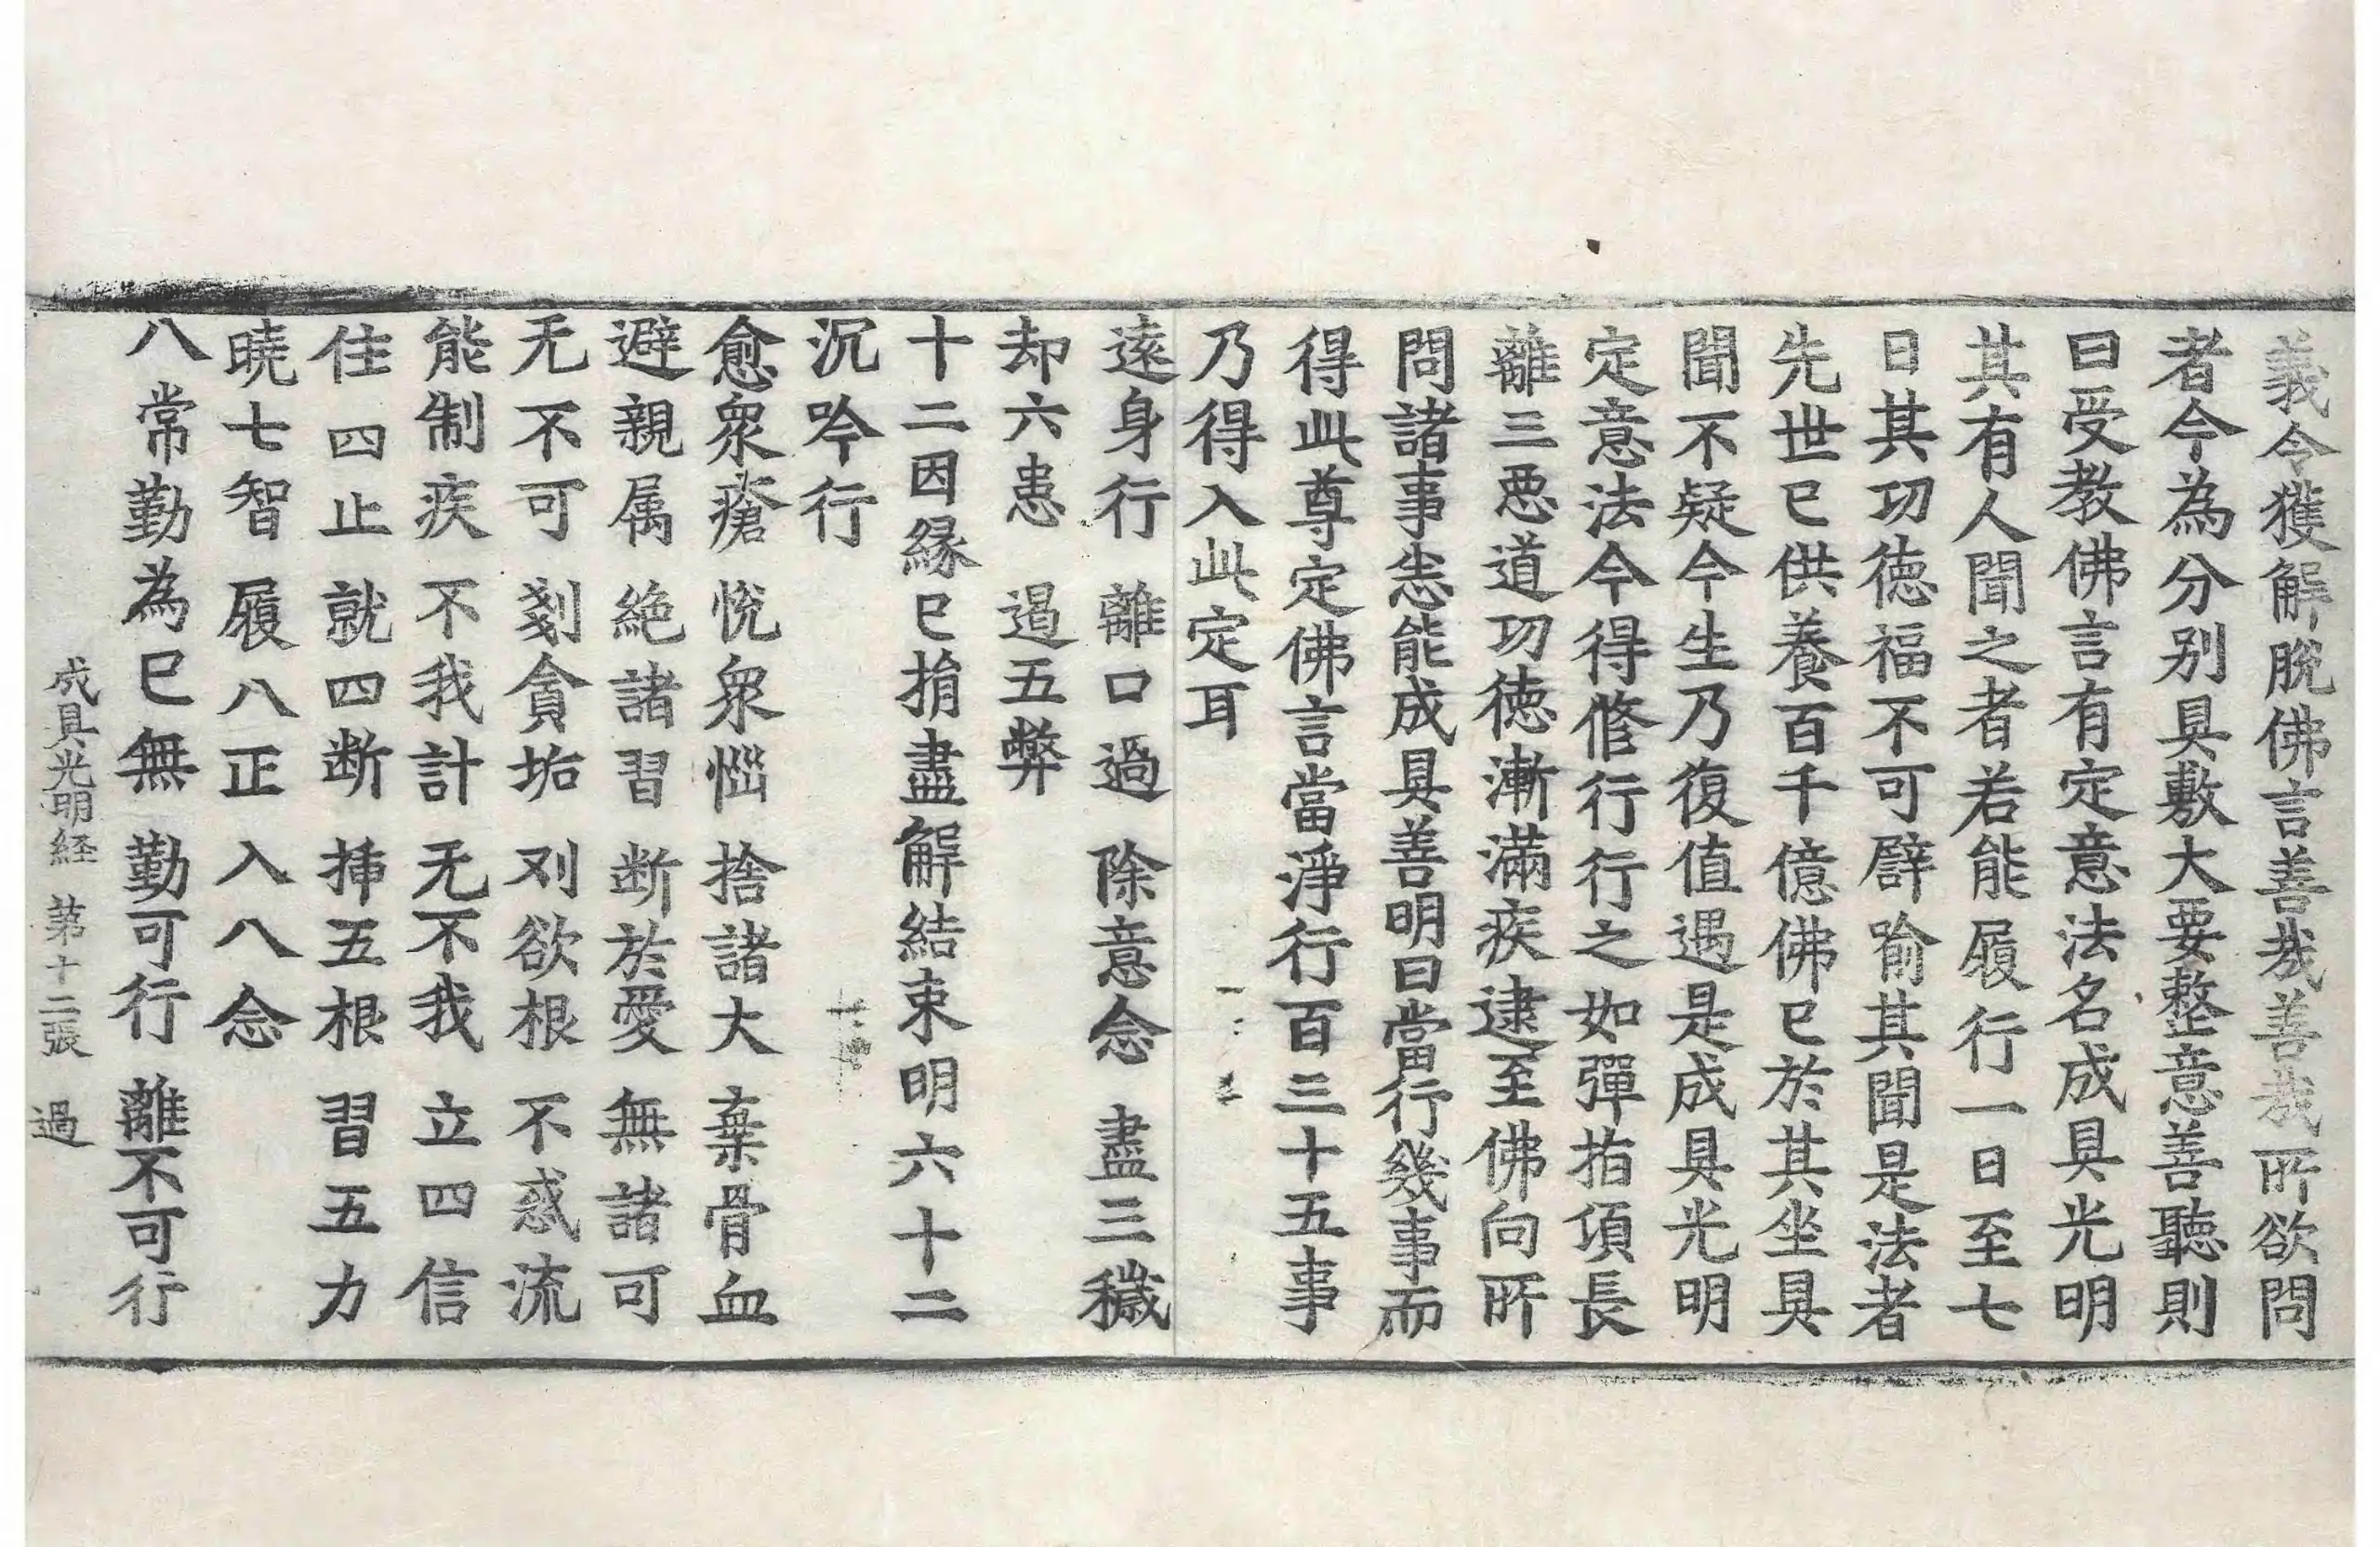 義令獲解脫佛言善哉善哉所欲問
者今為分別具敷大要整意善聽則
曰受教佛言有定意法名成具光明
其有人聞之者若能履行一日至七
日其功徳福不可辟喻其聞是法者
先世已供養百千億佛已於其坐具
聞不疑今生乃復值遇是成具光明
定意法今得修行行之如彈指頃長
離三惡道功徳漸滿疾逮至佛向所
問諸事悉能成具善明曰當行幾事而
得此尊定佛言當淨行百三十五事
乃得入此定耳
遠身行　離口過　除意念　盡三穢
却六患　過五弊
十二因緣已捐盡解結束明六十二
沉吟行
愈衆瘡　悅衆惱　捨諸大　棄骨血
避親属　絶諸習　断於愛　無諸可
无不可　剗貪垢　刈欲根　不惑流
能制疾　不我計　无不我　立四信
住四止　就四断　揷五根　習五力
曉七智　履八正　入八念
八常勤為已無　勤可行　離不可行
成具光明経　第十二張　過